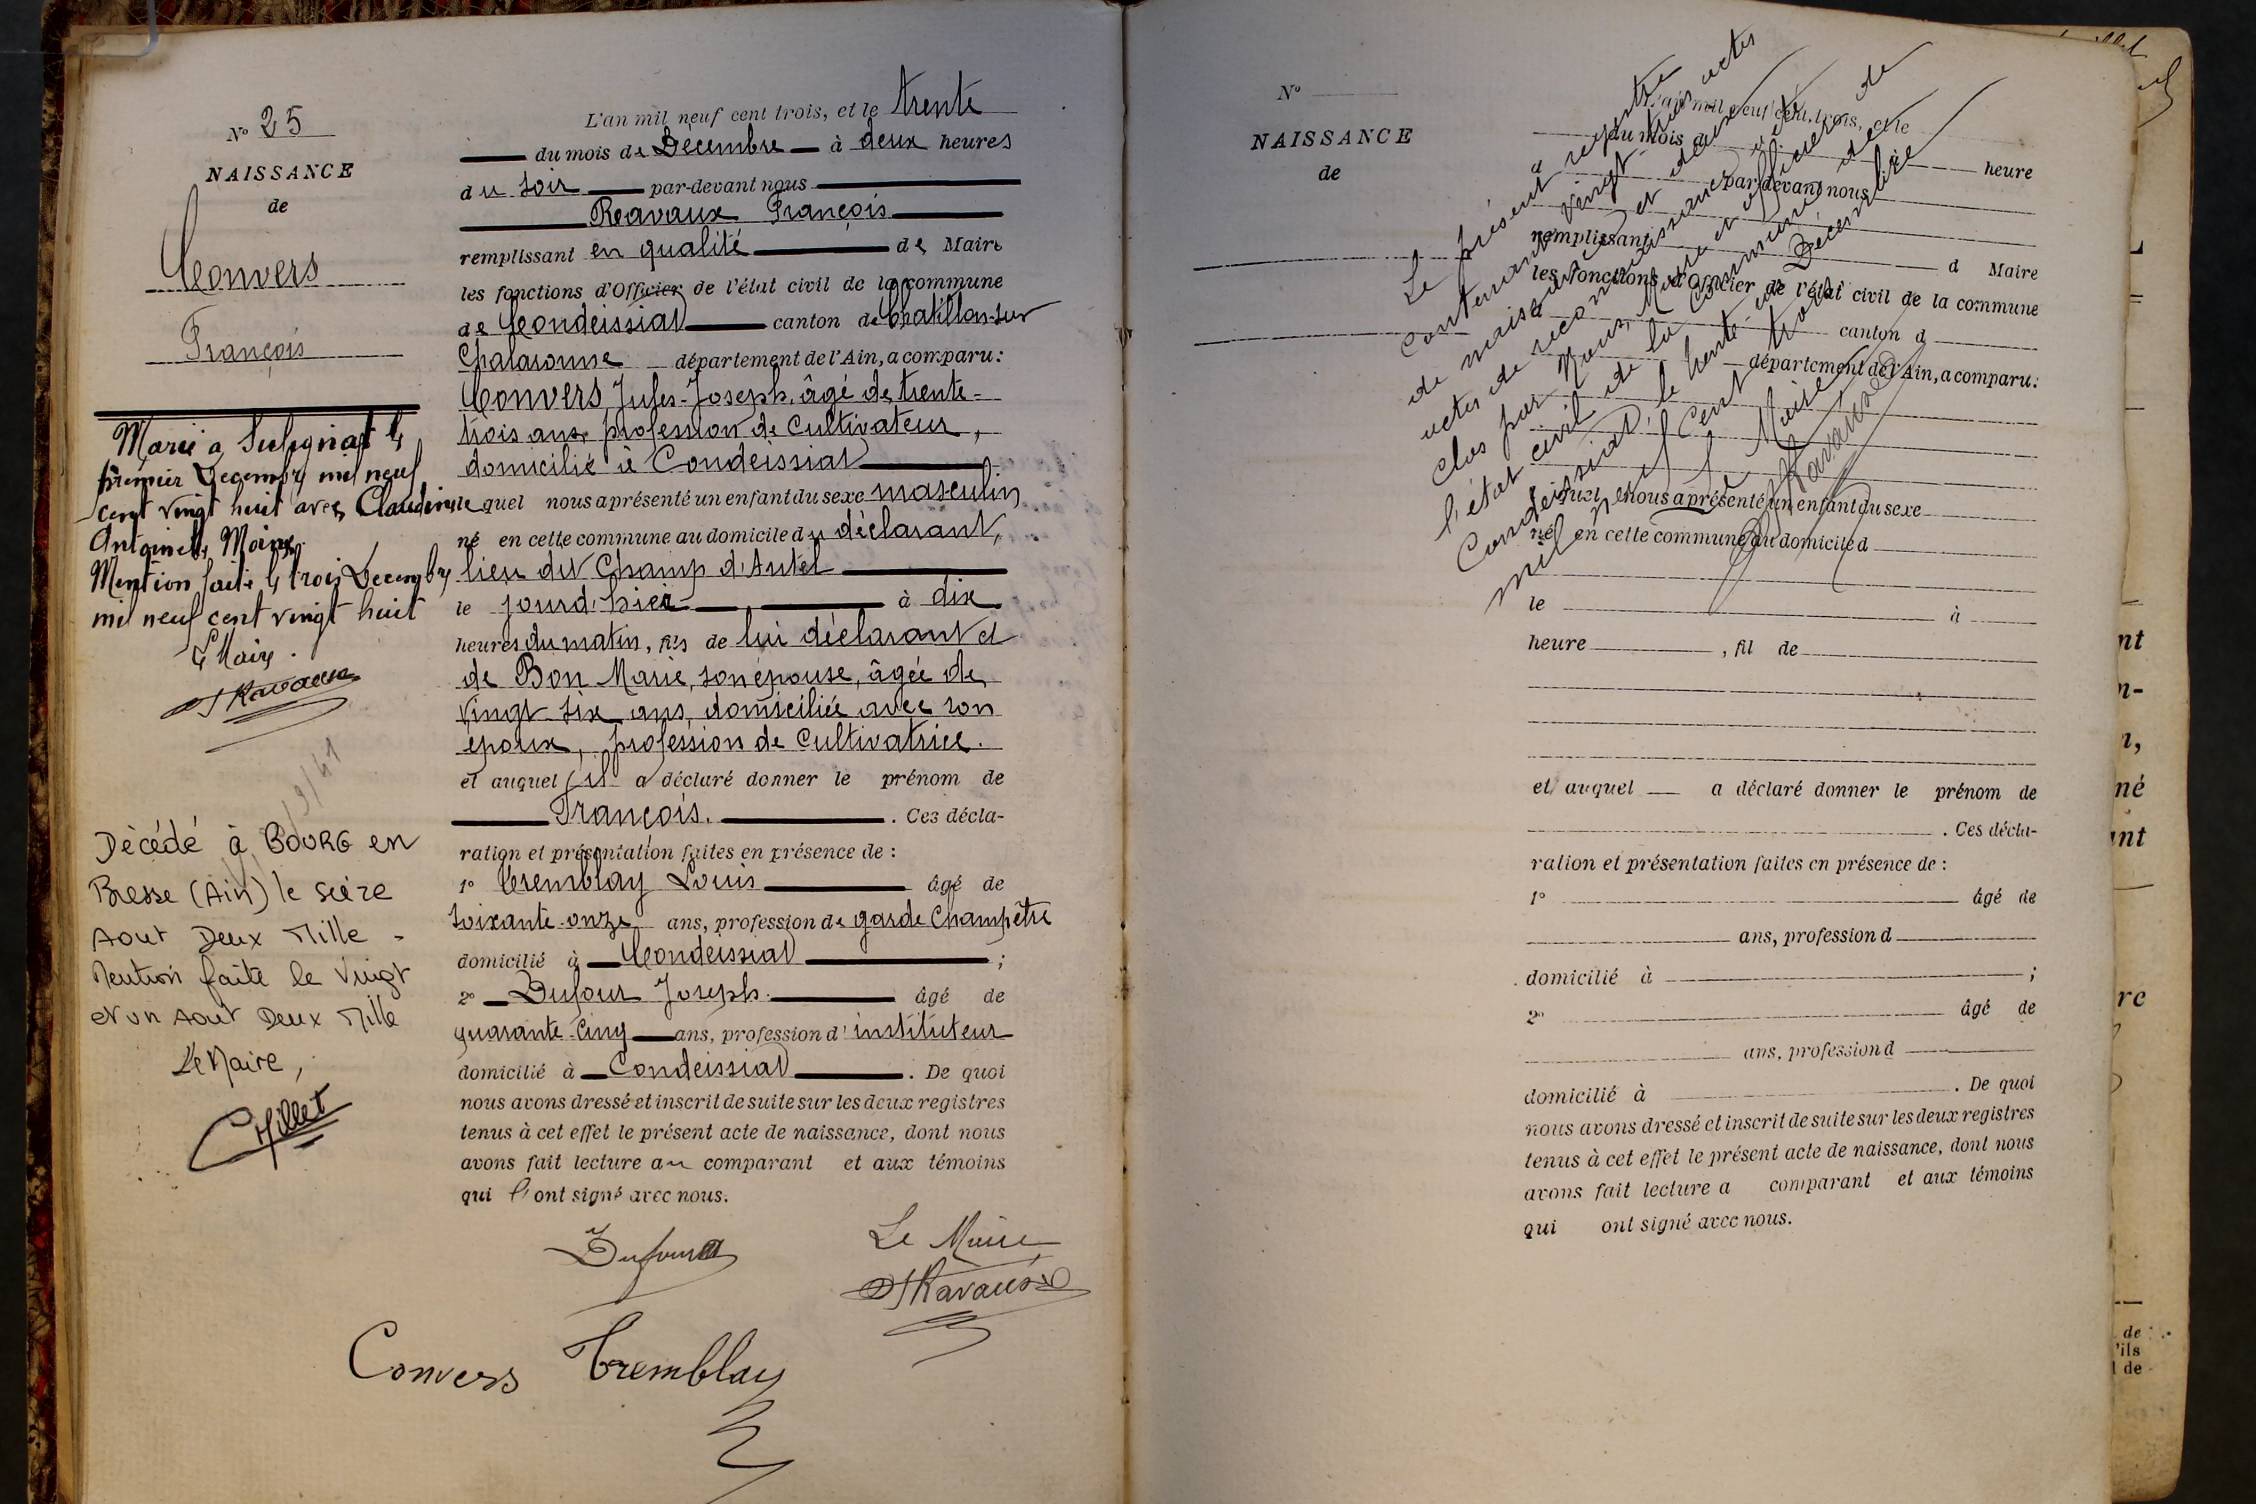 N° 25
NAISSANCE
de
Convers
François
Marié à Sulignat le
premier Decembre mil neuf
cent vingt huit avec Claudine
Antoinette Moine
Mention faite le trois Decembre
mil neuf cent vingt huit
Le Maire.
Ravaux
Décédé à BOURG en
Bresse (Ain) le seize
Aout Deux Mille -
Mention faite le vingt
et un Aout Deux Mille
Le Maire,
Millet
L'an mil neuf cent trois, et le trente
du mois de Décembre à deux heures
du soir par-devant nous
Ravaux François
remplissant en qualité de Maire
les fonctions d'Officier de l'état civil de la commune
de Condeissiat canton de Chatillon-sur
Chalaronne département de l'Ain, a comparu :
Convers Jules-Joseph, âgé de trente-
trois ans, profession de Cultivateur,
domicilié à Condeissiat
lequel nous a présenté un enfant du sexe masculin
né en cette commune au domicile du déclarant,
lieu dit Champ d'Autel
le jourd'hier à dix
heures du matin, fils de lui déclarant et
de Bon Marie, son épouse, âgée de
vingt six ans, domiciliée avec son
époux, profession de Cultivatrice.
et auquel il a déclaré donner le prénom de
François. . Ces décla-
ration et présentation faites en présence de :
1° Tremblay Louis âgé de
soixante-onze ans, profession de garde Champêtre
domicilié à Condeissiat ;
2° Dufour Joseph. âgé de
quarante-cinq ans, profession d'instituteur
domicilié à Condeissiat . De quoi
nous avons dressé et inscrit de suite sur les deux registres
tenus à cet effet le présent acte de naissance, dont nous
avons fait lecture au comparant et aux témoins
qui l'ont signé avec nous.
Dufour
Le Maire
Ravaux
Convers Tremblay
N°
NAISSANCE
de
L'an mil neuf cent trois, et le
du mois d à heure
par-devant nous
remplissant d Maire
les fonctions d'Officier de l'état civil de la commune
d canton d
département de l'Ain, a comparu :
Le présent registre
contenant vingt trois actes
de naissance et deux
actes de reconnaissance a été
clos par Nous, Maire et officier de
l'état civil de la Commune de
Condeissiat, le trente un Décembre
mil neuf cent trois
Le Maire
Ravaux
quel nous a présenté un enfant du sexe
né en cette commune au domicile d
le à
heure , fil de
et auquel a déclaré donner le prénom de
. Ces décla-
ration et présentation faites en présence de :
1° âgé de
ans, profession d
domicilié à ;
2° âgé de
ans, profession d
domicilié à . De quoi
nous avons dressé et inscrit de suite sur les deux registres
tenus à cet effet le présent acte de naissance, dont nous
avons fait lecture a comparant et aux témoins
qui ont signé avec nous.